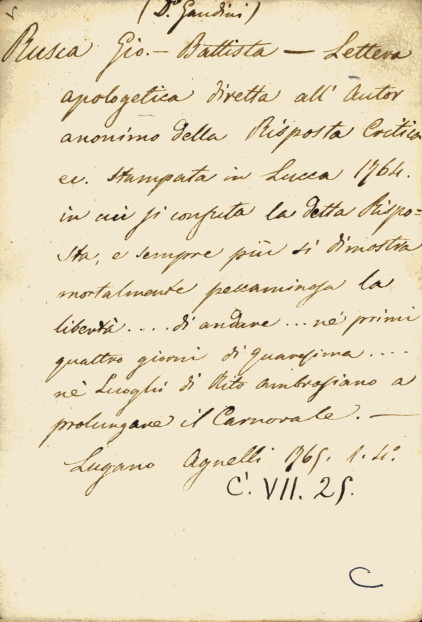 (Dr. Gandini)
Rusca Gio. - Battista - Lettera
apologetica diretta all' Autor
anonimo della Risposta Critica
ec. stampata in Lucca 1764.
in cui si confuta la detta Rispo=
sta, e sempre più si dimostra
mortalmente peccaminosa la
libertà .... di andare ... nè primi
quattro giorni di quaresima ....
nè Luoghi di Rito ambrosiano a
prolungare il Carnovale. -
Lugano Agnelli 1765. 1. 4º.
C. VII. 25.
C